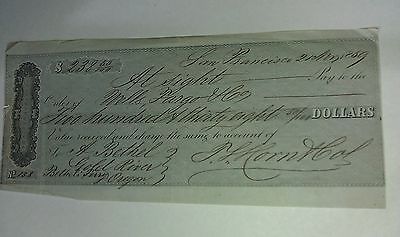 $ 238 00/100 San Francisco 20 Aug 1859
At Sight Pay to the
Order of Wells Fargo & Co
Two hundred & thirty eight 00/100 DOLLARS
Value received and charge the same to account of
To A Bethel
River
Bethel's Ferry Oregon
No. 188